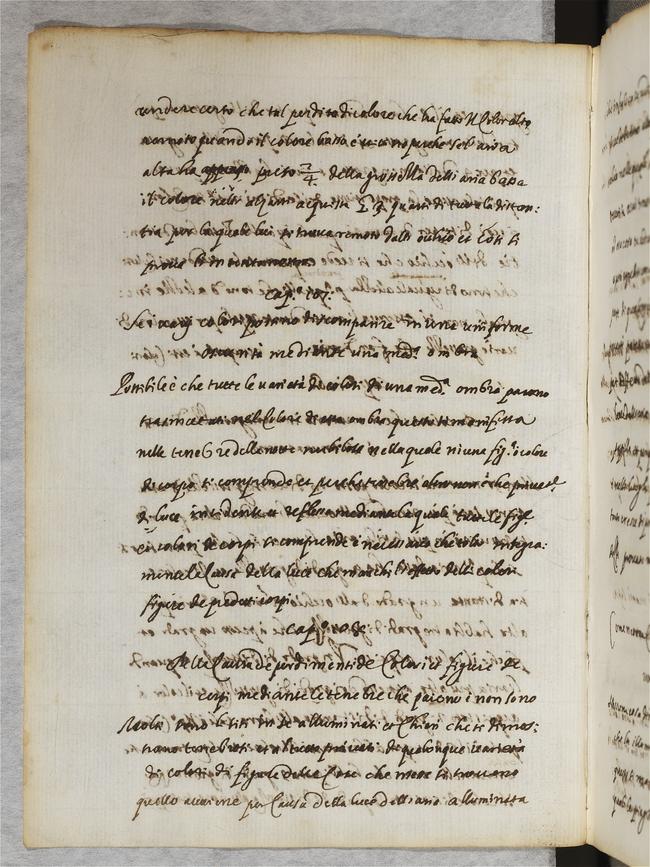 rendere certo che tal perdita di colore che ha fatto il Color alto
remoto quando il colore basso è vicino perche se l'aria
alta ha fatto 3/4 della grossezza dell'aria bassa
il colore nell' alzarsi acquista quarti di tutta la distan:
tia per la quale lui si trova remoto dall' occhio et così si
prova il
cap.
Se i varij colori possano discomparire in una uniforme
oscurità mediante una med.a ombra
Possibile è che tutte le varietà de colori di una med.a ombra paiono
trasmutati nel Colore di essa ombra questo si manifesta
nelle tenebre delle notte nubilose nella quale niuna fig.a o colore
di corpo si comprende et perche tenebre altro non è che privat.e
di luce incidente et reflessa mediante la quale tutte le fig.e
et i colori de corpi si comprende è necessario che tolto integra:
mente la Causa della luce che manchi l'effetto delli colori
figure de predetti corpi
cap.
Della Causa de perdimenti de Colori et figure de
corpi mediante le tenebre che paiono i non sono
Molti sono li siti in se alluminati et Chiari che si dimos:
trano tenebrosi et al tutto privati di qualonque varietà
di colori di figure delle Cose che in esse si trovano
questo avviene per Causa della luce dell'aria alluminata